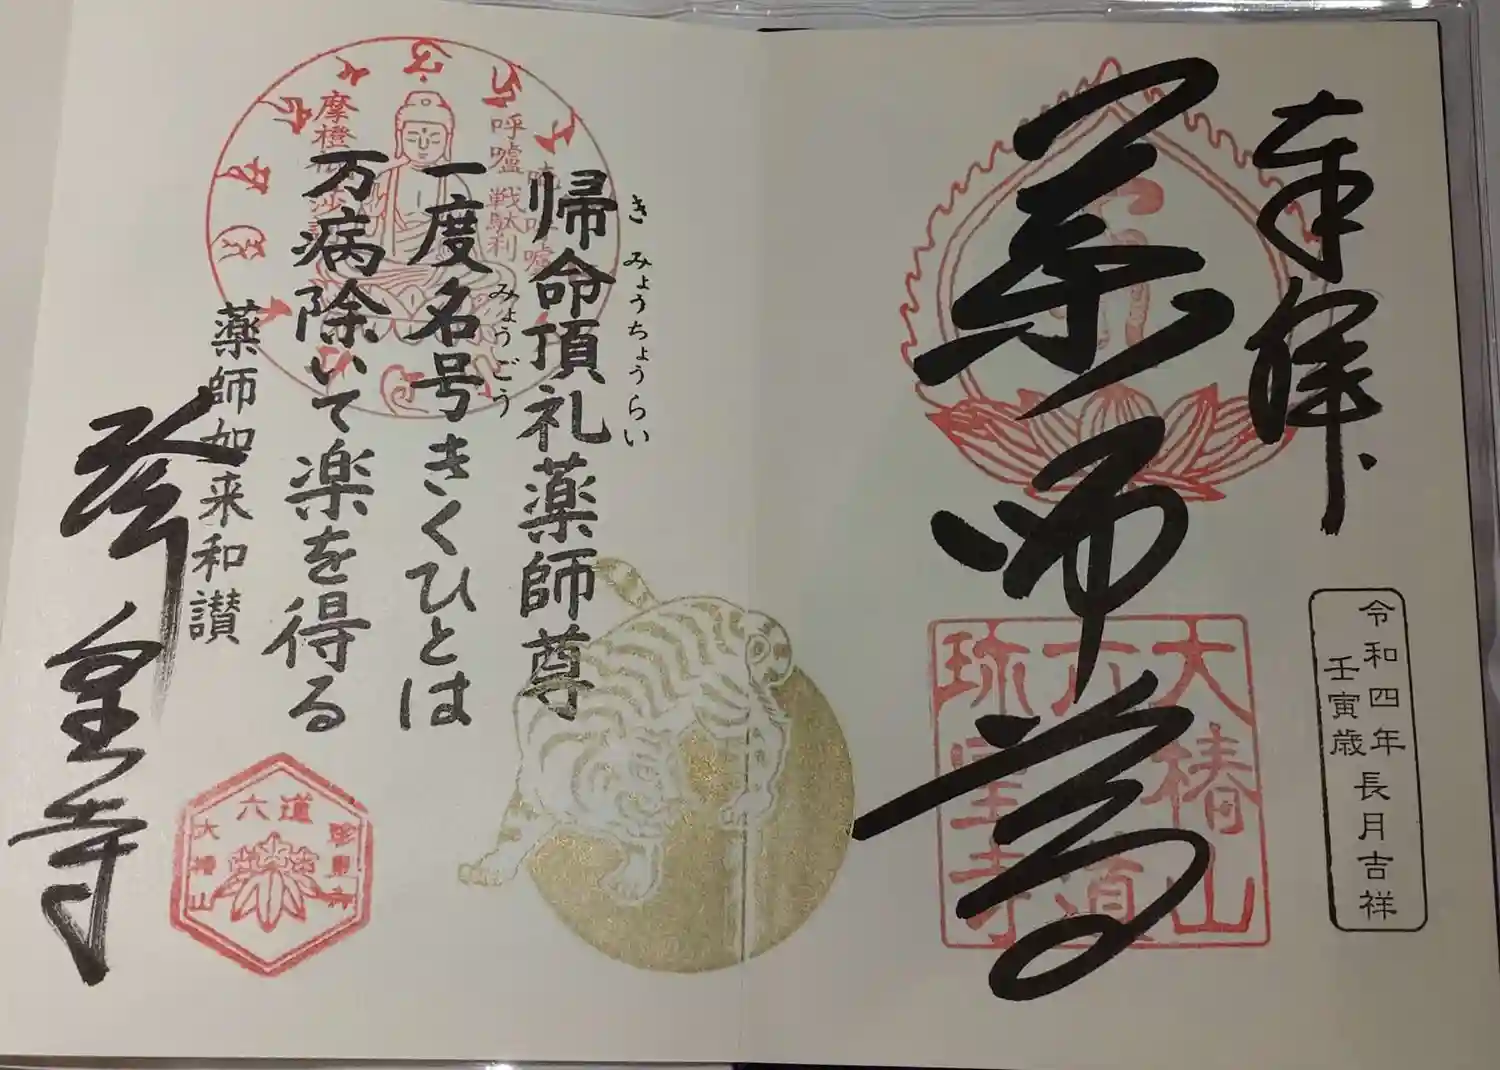 奉拝
薬師尊
令和四年長月吉祥
壬寅歳
大椿山
六道
珍皇寺
きみょうちょうらい
帰命頂礼薬師尊
みょうごう
一度名号きくひとは
万病除いて楽を得る
薬師如来和讃
珍皇寺
呼嚧戦駄利
六道
珍皇寺
大椿山